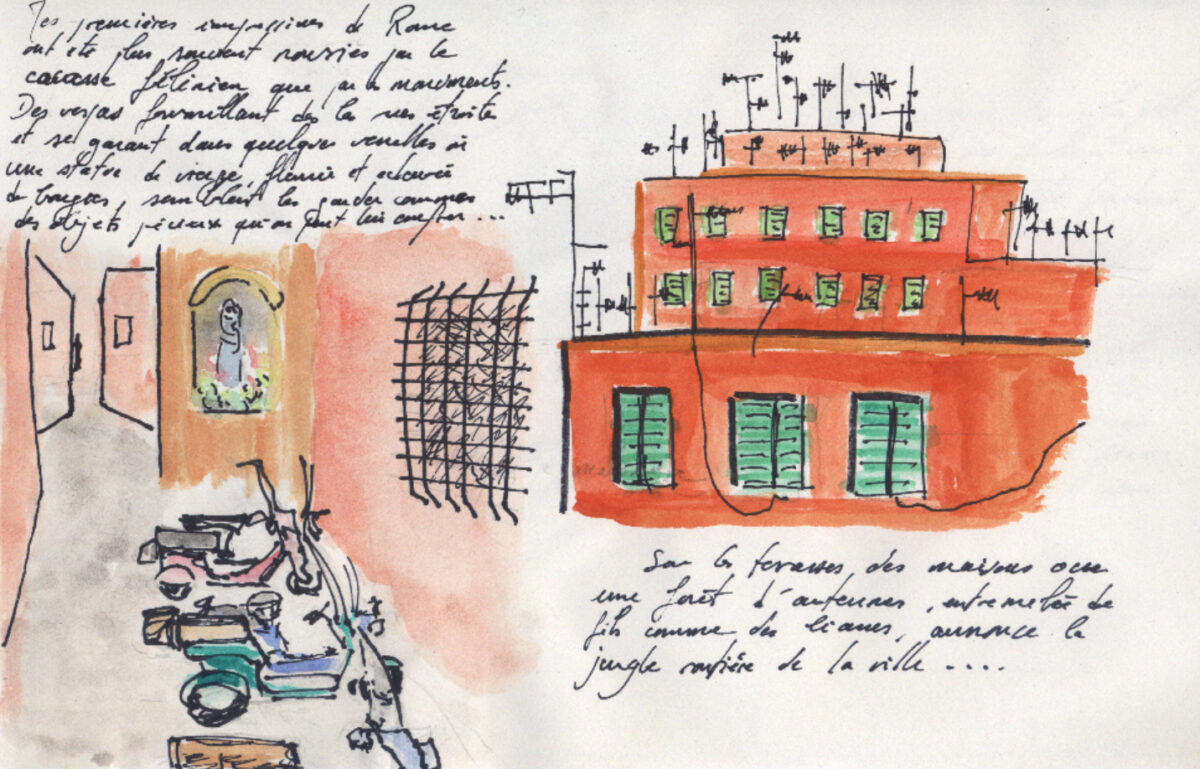 Les premières impressions de Rome
ont été plus souvent nourries par le
félinien que par les monuments.
Des vespas fourmillant dès les rues étroites
et se garant dans quelques venelles où
une statue de vierge fleurie et entourée
de bougies, semblent les garder comme
des objets précieux qu'on peut lui confier ...
Sur les terrasses des maisons ocre
une forêt d'antennes, entremêlée de
fils comme des lianes, annonce la
jungle routière de la ville ....